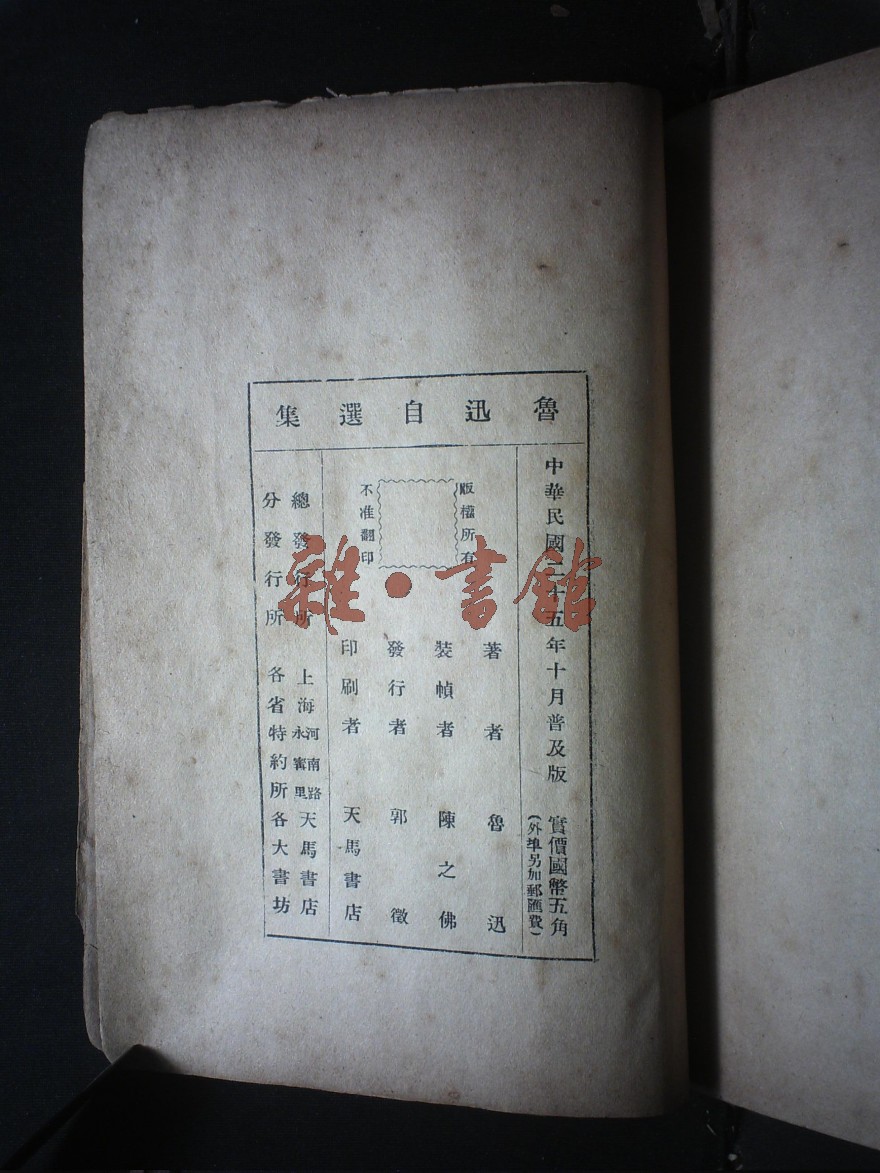 魯迅自選集
中華民國二十五年十月普及版
實價國幣五角
(外埠另加郵匯費)
版權所有
不准翻印
著者 魯迅
裝幀者 陳之佛
發行者 郭徵
印刷者 天馬書店
總發行所 上海河南路永甯里天馬書店
分發行所 各省特約所各大書坊
雜·書館